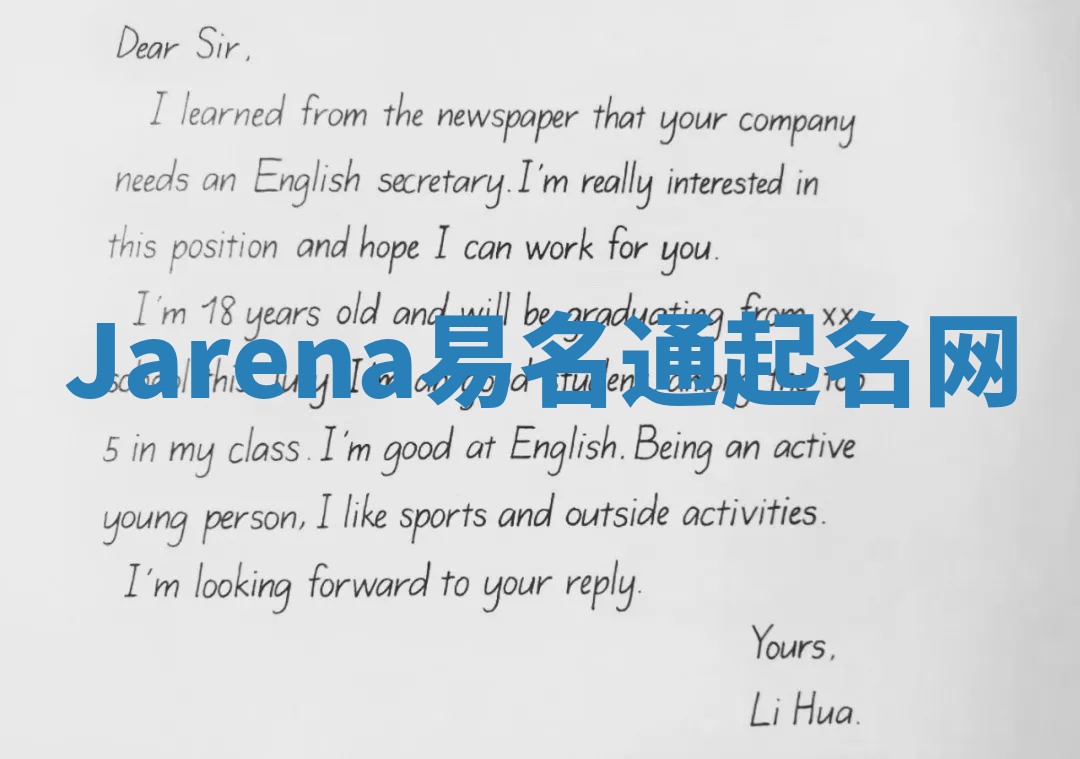 Dear Sir,
I learned from the newspaper that your company
needs an English secretary. I'm really interested in
this position and hope I can work for you.
I'm 18 years old and will be graduating from xx
Jarena易名通起名网
school this July. I'm a good student among the top
5 in my class. I'm good at English. Being an active
young person, I like sports and outside activities.
I'm looking forward to your reply.
Yours,
Li Hua.